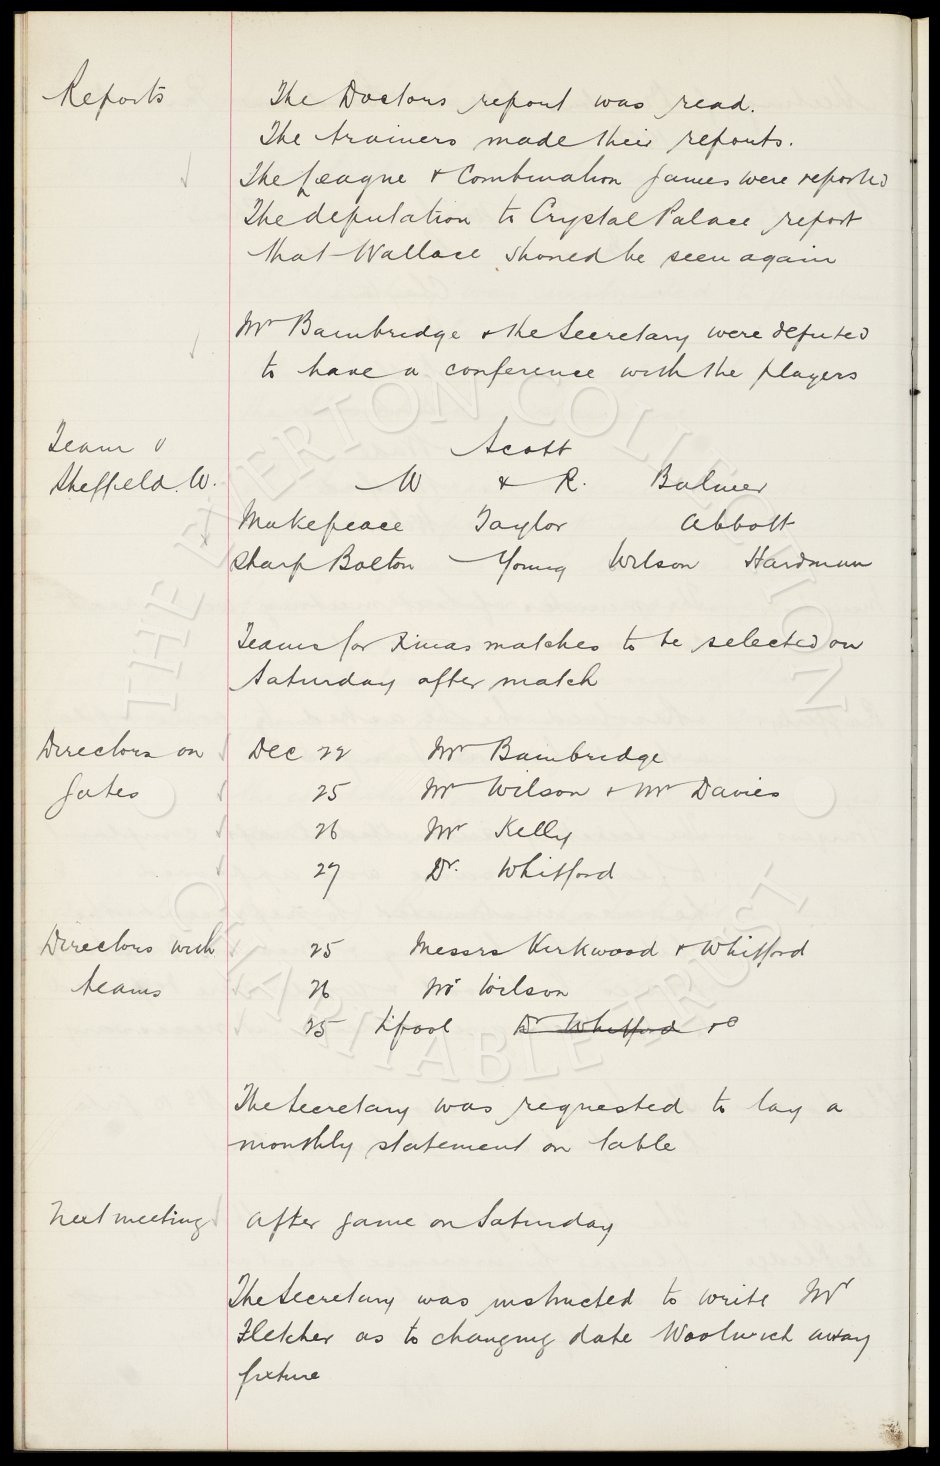 Reports The Doctors report was read.
The trainers made their reports.
The League & Combination games were reported
The deputation to Crystal Palace report
that Wallace should be seen again
Mr Bainbridge & the Secretary were deputed
to have a conference with the players
Team v Scott
Sheffield. W. W & R. Balmer
Makepeace Taylor Abbott
Sharp Bolton Young Wilson Hardman
Teams for Xmas matches to be selected on
Saturday after match
Directors on Dec 22 Mr Bainbridge
gates 25 Mr Wilson & Mr Davies
26 Mr Kelly
27 Dr. Whitford
Directors with 25 Messrs Kirkwood & Whitford
teams 26 Mr Wilson
25 L'pool Dr Whitford
The Secretary was requested to lay a
monthly statement on table
Next meeting After game on Saturday
The Secretary was instructed to write Mr
Fletcher as to changing date Woolwich away
fixture
© THE EVERTON COLLECTION ©
CHARITABLE TRUST